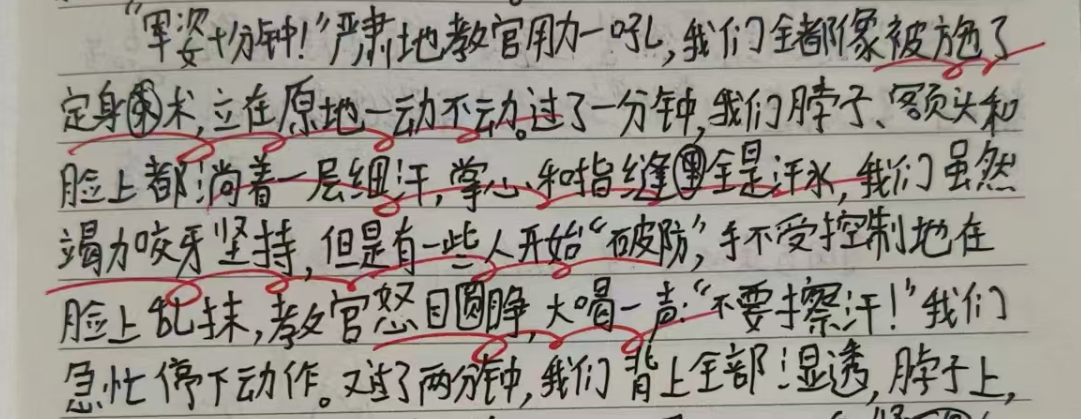 “军姿十分钟！”严肃地教官用力一吼，我们全都像被施了
定身术，立在原地一动不动。过了一分钟，我们脖子、额头和
脸上都淌着一层细汗，掌心和指缝里全是汗水，我们虽然
竭力咬牙坚持，但是有一些人开始“破防”，手不受控制地在
脸上乱抹，教官怒目圆睁，大喝一声：“不要擦汗！”我们
急忙停下动作。又过了两分钟，我们背上全部湿透，脖子上，